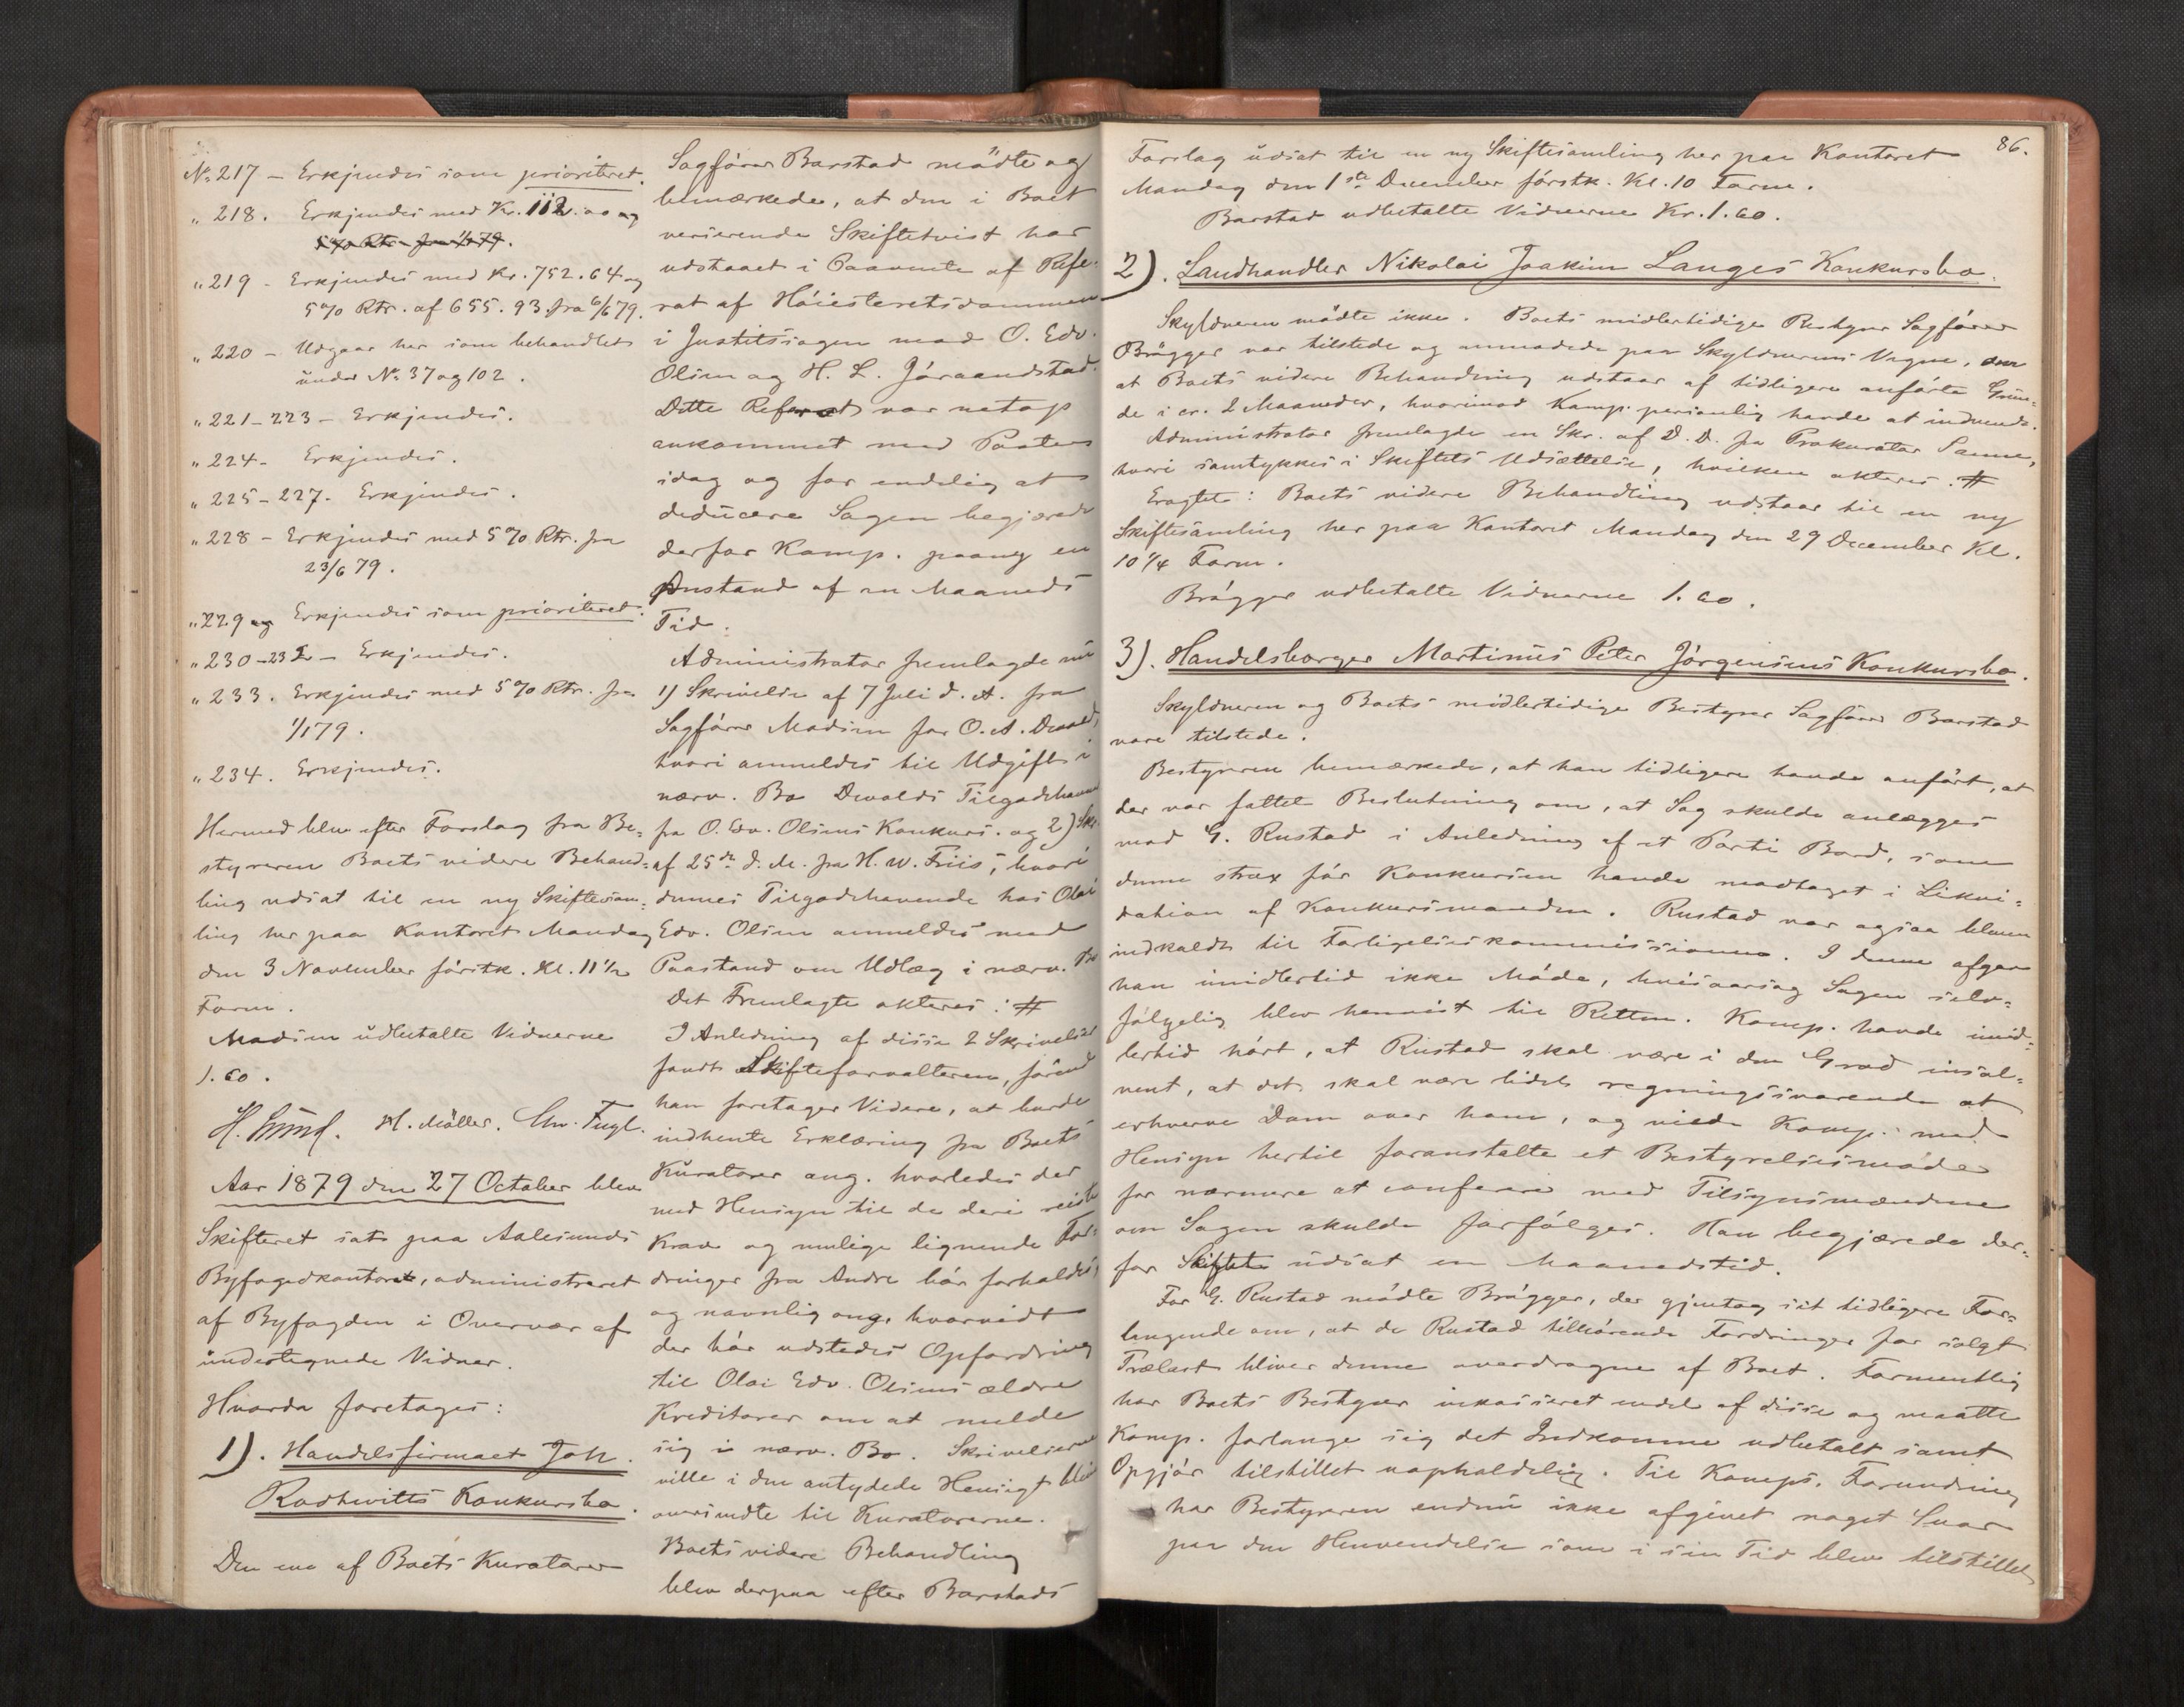 No 217 – Erkjendes som prioriteret.
" 218. Erkjendes med Kr. 112.00 og
5% Rtr. fra 1/1 79.
" 219 – Erkjendes med Kr. 752.64 og
5% Rtr. af 655.93 fra 6/6 79.
" 220 – Udgaar her som behandlet
under No 37 og 102.
" 221–223 – Erkjendes.
" 224 – Erkjendes.
" 225–227 – Erkjendes.
" 228 – Erkjendes med 5% Rtr. fra
23/6 79.
" 229 og Erkjendes som prioriteret.
" 230–232 – Erkjendes.
" 233. Erkjendes med 5% Rtr. fra
1/1 79.
" 234. Erkjendes.
Hermed blev efter Forslag fra Be-
styreren Boets videre Behand-
ling udsat til en ny Skiftesam-
ling her paa Kontoret Mandag
den 3 November förstk. Kl. 11½
Form.
Madsen udbetalte Vidnerne
1.60.
H. Lund. M. Möller. Chr. Fugl.
Aar 1879 den 27 October blev
Skifteret sat paa Aalesunds
Byfogedkontoret, administreret
af Byfogden i Overvær af
undertegnede Vidner.
Hvorda foretoges:
1). Handelsfirmaet Joh.
Rodtwitts Konkursbo.
Den ene af Boets Kuratorer
Sagförer Barstad mödte og
bemærkede, at den i Boet
verserende Skiftetvist har
udstaaet i Paavente af Refe-
rat af Höiesteretsdommen
i Justitssagen mod O. Edv.
Olsen og H. L. Jöraandstad.
Dette Referat var netop
ankommet med Posten
idag og for endelig at
deducere Sagen begjærede
derfor Komp. paany en
Anstand af en Maaneds
Tid.
Administrator fremlagde nu
1) Skrivelse af 7 Juli d. A. fra
Sagförer Madsen for O. A. Devold,
hvori anmeldes til Udgift i
nærv. Bo Devolds Tilgodehavende
fra O. Edv. Olsens Konkurs. og 2) Skr.
af 25de d. M. fra H. W. Friis, hvori
dennes Tilgodehavende hos Olai
Edv. Olsen anmeldes med
Paastand om Udlæg i nærv. Bo
Det Fremlagte akteres: #
I Anledning af disse 2 Skrivelser
fandt Skifteforvalteren, förend
han foretager Videre, at burde
indhente Erklæring fra Boets
Kuratorer ang. hvorledes der
med Hensyn til de deri reiste
Krav og mulige lignende For-
dringer fra Andre bör forholdes,
og navnlig ang. hvorvidt
der bör udstedes Opfordring
til Olai Edv. Olsens ældre
Kreditorer om at melde
sig i nærv. Bo. Skrivelserne
ville i den antydede Hensigt blive
oversendte til Kuratorerne.
Boets videre Behandling
blev derpaa efter Barstads
86.
Forslag udsat til en ny Skiftesamling her paa Kontoret
Mandag den 1ste December förstk. Kl. 10 Form.
Barstad udbetalte Vidnerne Kr. 1.60.
2). Landhandler Nikolai Joakim Langes Konkursbo.
Skyldneren mödte ikke. Boets midlertidige Bestyrer Sagförer
Brögger var tilstede og anmodede paa Skyldnerens Vegne, om
at Boets videre Behandling udstaar af tidligere anförte Grun-
de i cr. 2 Maaneder, hvorimod Komp. personlig havde at indvende.
Administrator fremlagde en Skr. af D. D. fra Prokurator Sanne,
hvori samtykkes i Skiftets Udsættelse, hvilken akteres. #
Eragtet: Boets videre Behandling udstaar til en ny
Skiftesamling her paa Kontoret Mandag den 29 December Kl.
10¼ Form.
Brögger udbetalte Vidnerne 1.60.
3). Handelsborger Martinus Peter Jörgensens Konkursbo.
Skyldneren og Boets midlertidige Bestyrer Sagförer Barstad
vare tilstede.
Bestyreren bemærkede, at han tidligere havde anfört, at
der var fattet Beslutning om, at Sag skulde anlægges
mod G. Rustad i Anledning af et Parti Bord, som
denne strax för Konkursen havde modtaget i Likvi-
dation af Konkursmanden. Rustad var ogsaa bleven
indkaldt til Forligelseskommissionen. I denne afgav
han imidlertid ikke Möde, hvisaarsag Sagen selv-
fölgelig blev henvist til Retten. Komp. havde imid-
lertid hört, at Rustad skal være i den Grad insol-
vent, at det skal være lidet regningssvarende at
erhverve Dom over ham, og vilde Komp. med
Hensyn hertil foranstalte et Bestyrelsesmöde
for nærmere at conferere med Tilsynsmændene
om Sagen skulde forfölges. Han begjærede der-
for Skiftet udsat en Maanedstid.
For G. Rustad mödte Brögger, der gjentog sit tidligere For-
langende om, at de Rustad tilhörende Fordringer for solgt
Trælast bliver denne overdragne af Boet. Formentlig
har Boets Bestyrer inkasseret endel af disse og maatte
Komp. forlange sig det Indkomne udbetalt samt
Opgjör tilstillet uopholdelig. Til Komps. Forundring
har Bestyreren endnu ikke afgivet noget Svar
paa den Henvendelse som i sin Tid blev tilstillet